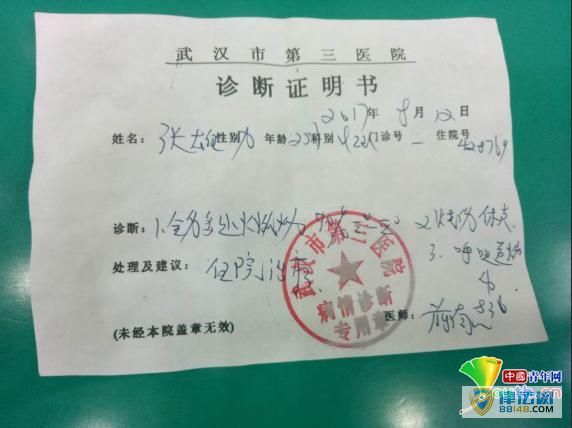 武汉市第三医院
诊断证明书
2017年 8月 12日
姓名: 张 性别 男 年龄 科别 门诊号 一 住院号
诊断: 1.全身多处火焰烧伤 70% 2.烧伤休克
3.呼吸道烧伤
处理及建议: 住院治疗.
武汉市第三医院
病情诊断
专用章
医师:
(未经本院盖章无效)
中國青年网
律法网
88148.com